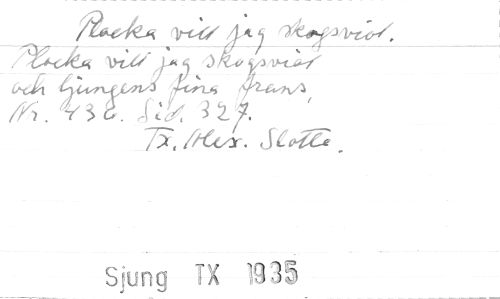 Plocka vill jag skogsviol.
Plocka vill jag skogsviol
och ljungens fina frans,
Nr. 436. Sid. 327.
Tx. Alex. Slotte.
Sjung TX 1935